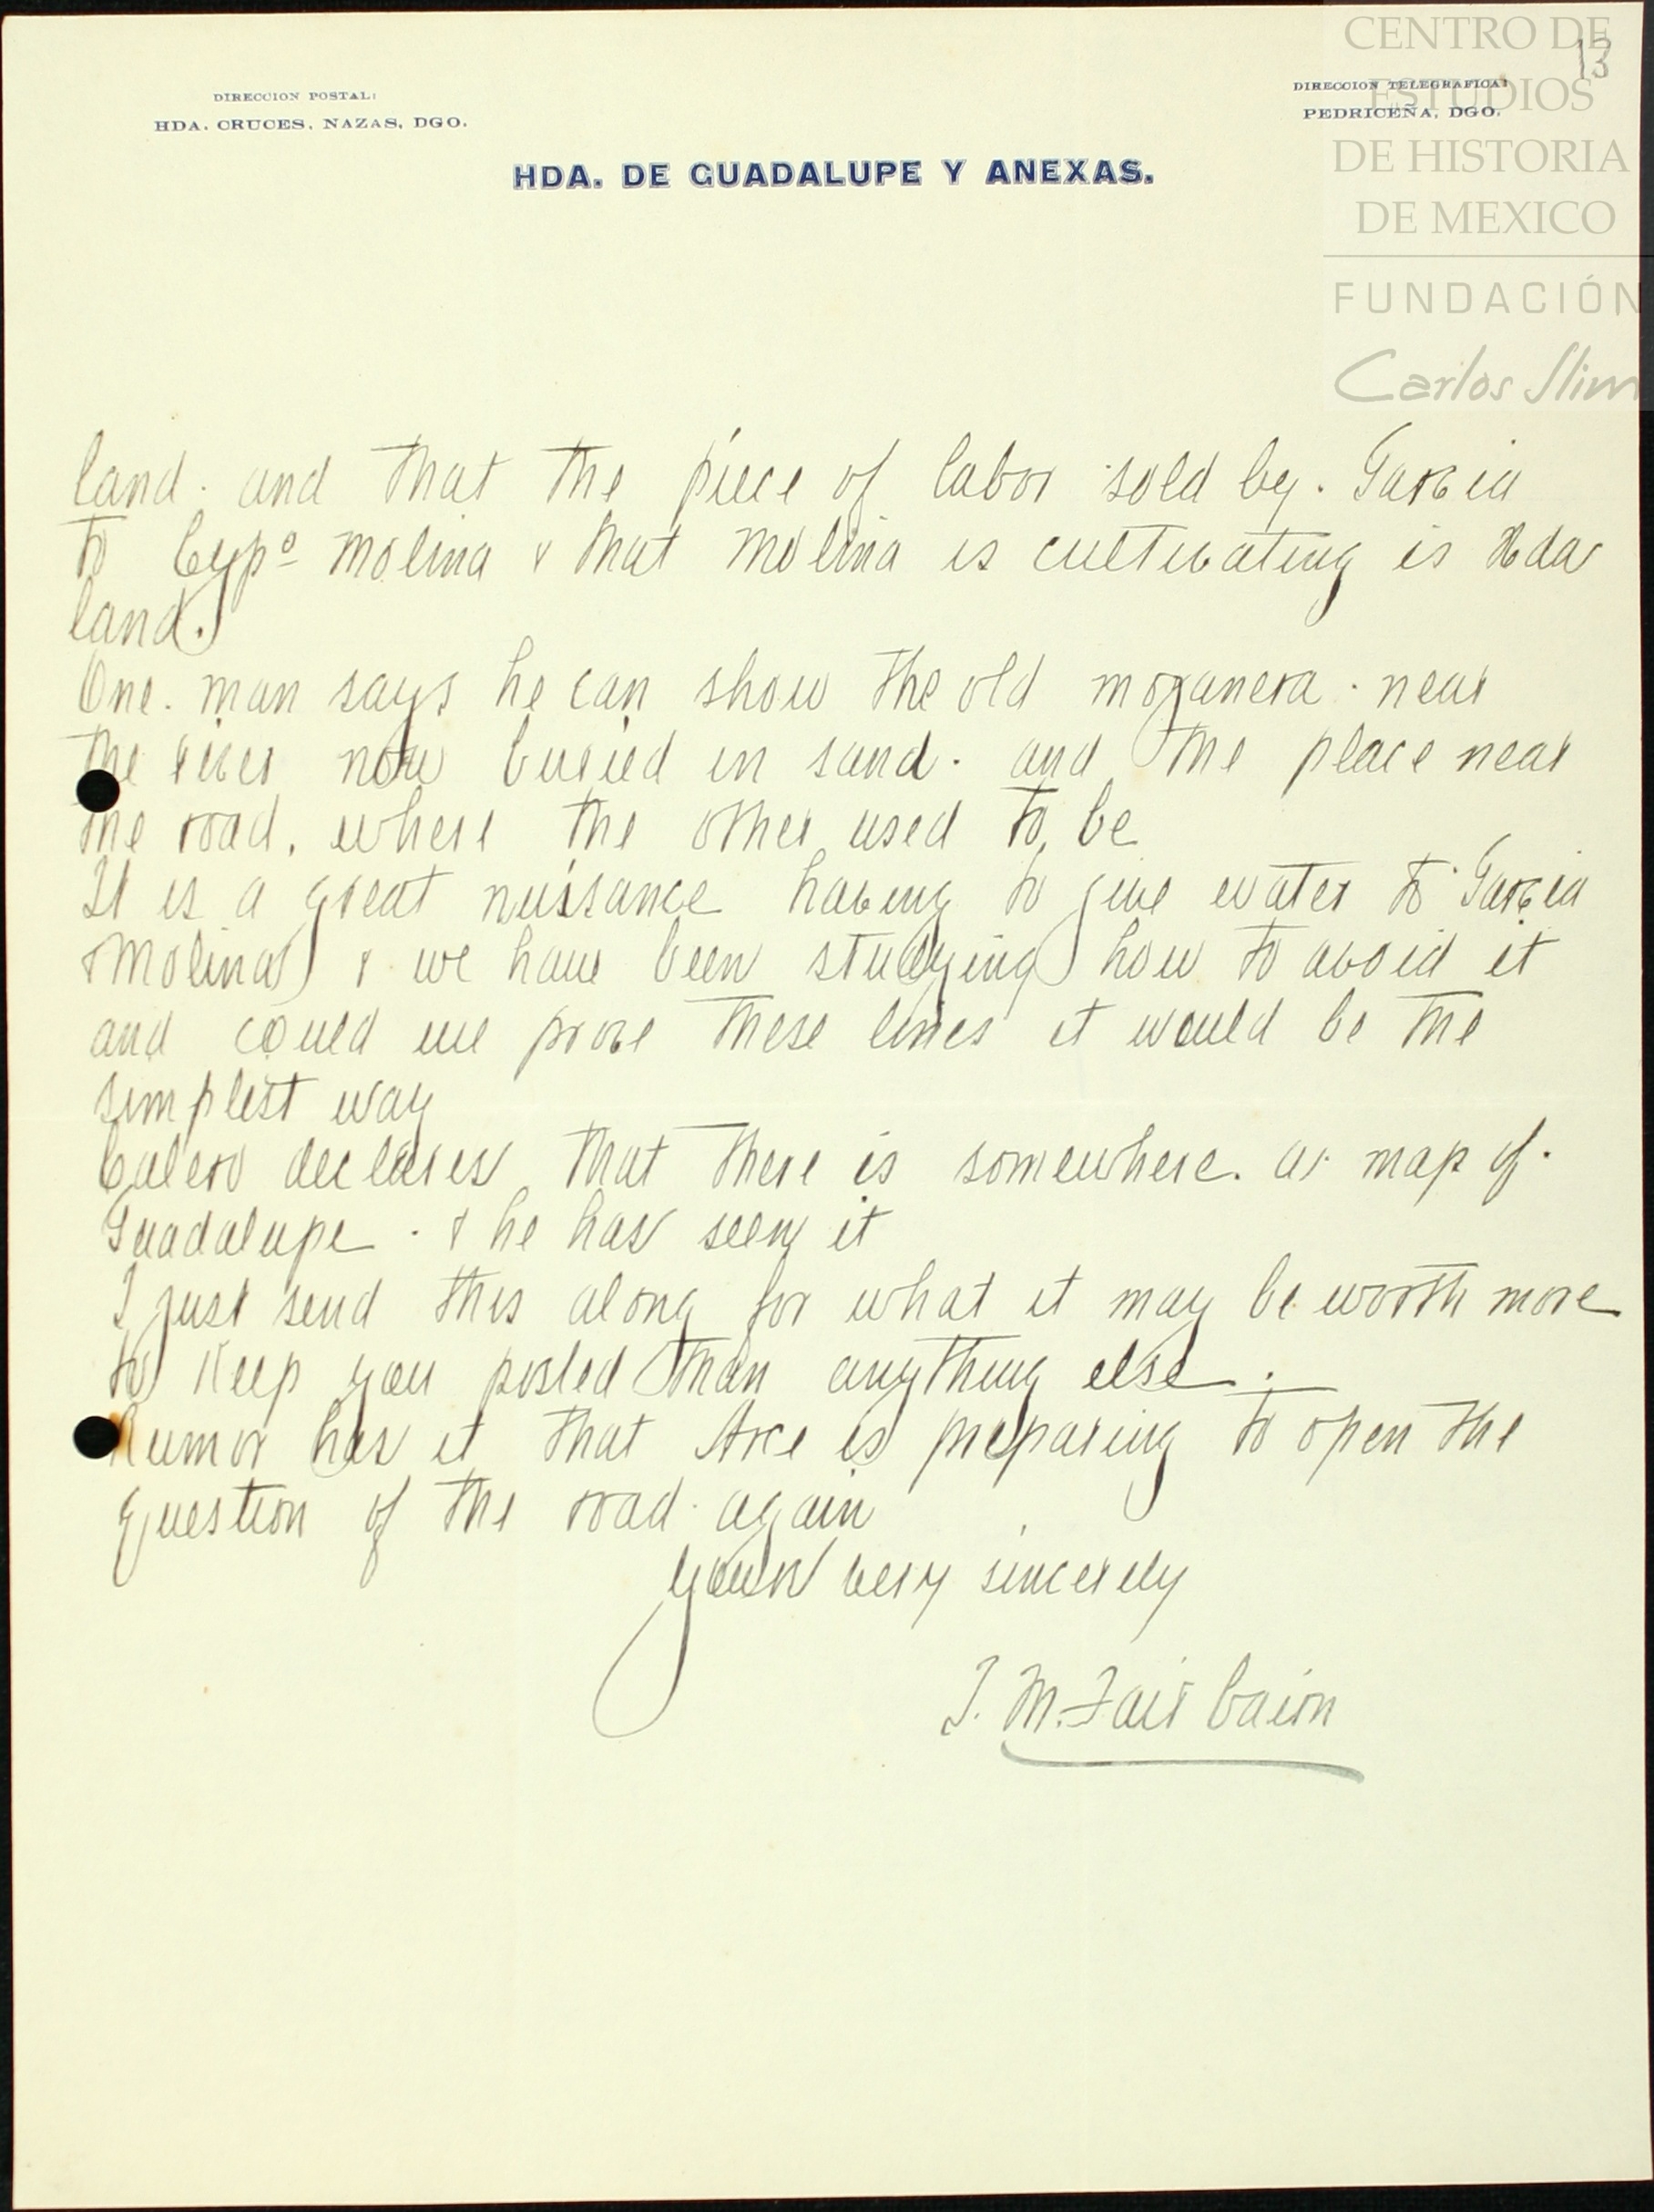 CENTRO DE
ESTUDIOS
DE HISTORIA
DE MEXICO
FUNDACIÓN
Carlos Slim
13
DIRECCION POSTAL:
HDA. CRUCES, NAZAS, DGO.
DIRECCION TELEGRAFICA:
PEDRICEÑA, DGO.
HDA. DE GUADALUPE Y ANEXAS.
land. and that the piece of labor sold by. Garcia
to Cypº Molina & that Molina is cultivating is Hda
land.
One. man says he can show the old mojanera. near
the river now buried in sand. and the place near
the road, where the other used to be
It is a great nuissance having to give water to Garcia
& Molina & we have been studying how to avoid it
and could we prove these lines it would be the
simplest way
Calero declares that there is somewhere. a map of.
Guadalupe. & he has seen it
I just send this along for what it may be worth more
to keep you posted than anything else.
Rumor has it that Arce is preparing to open the
question of the road again
Yours very sincerely
J. M. Fairbairn